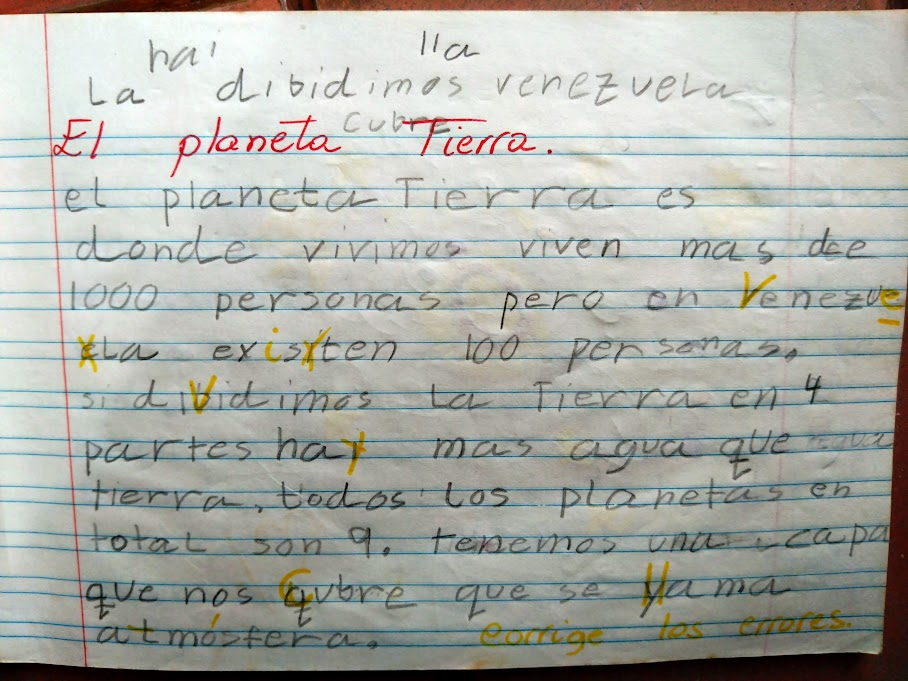 hai lla
La dibidimos venezuela
cubre
El planeta Tierra.
el planeta Tierra es
donde vivimos viven mas de
1000 personas pero en Venezue
la existen 100 personas.
si dividimos la Tierra en 4
partes hay mas agua que agua
tierra. todos los planetas en
total son 9. tenemos una capa
que nos cubre que se llama
atmósfera. corrige los errores.